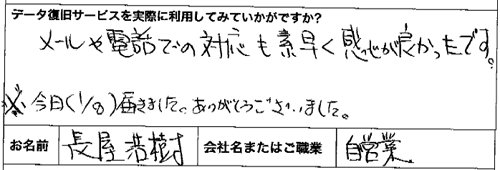 データ復旧サービスを実際に利用してみていかがですか?
メールや電話での対応も素早く感じが良かったです。
※今日(1/8)届きました。ありがとうございました。
お名前 長屋浩樹 会社名またはご職業 自営業